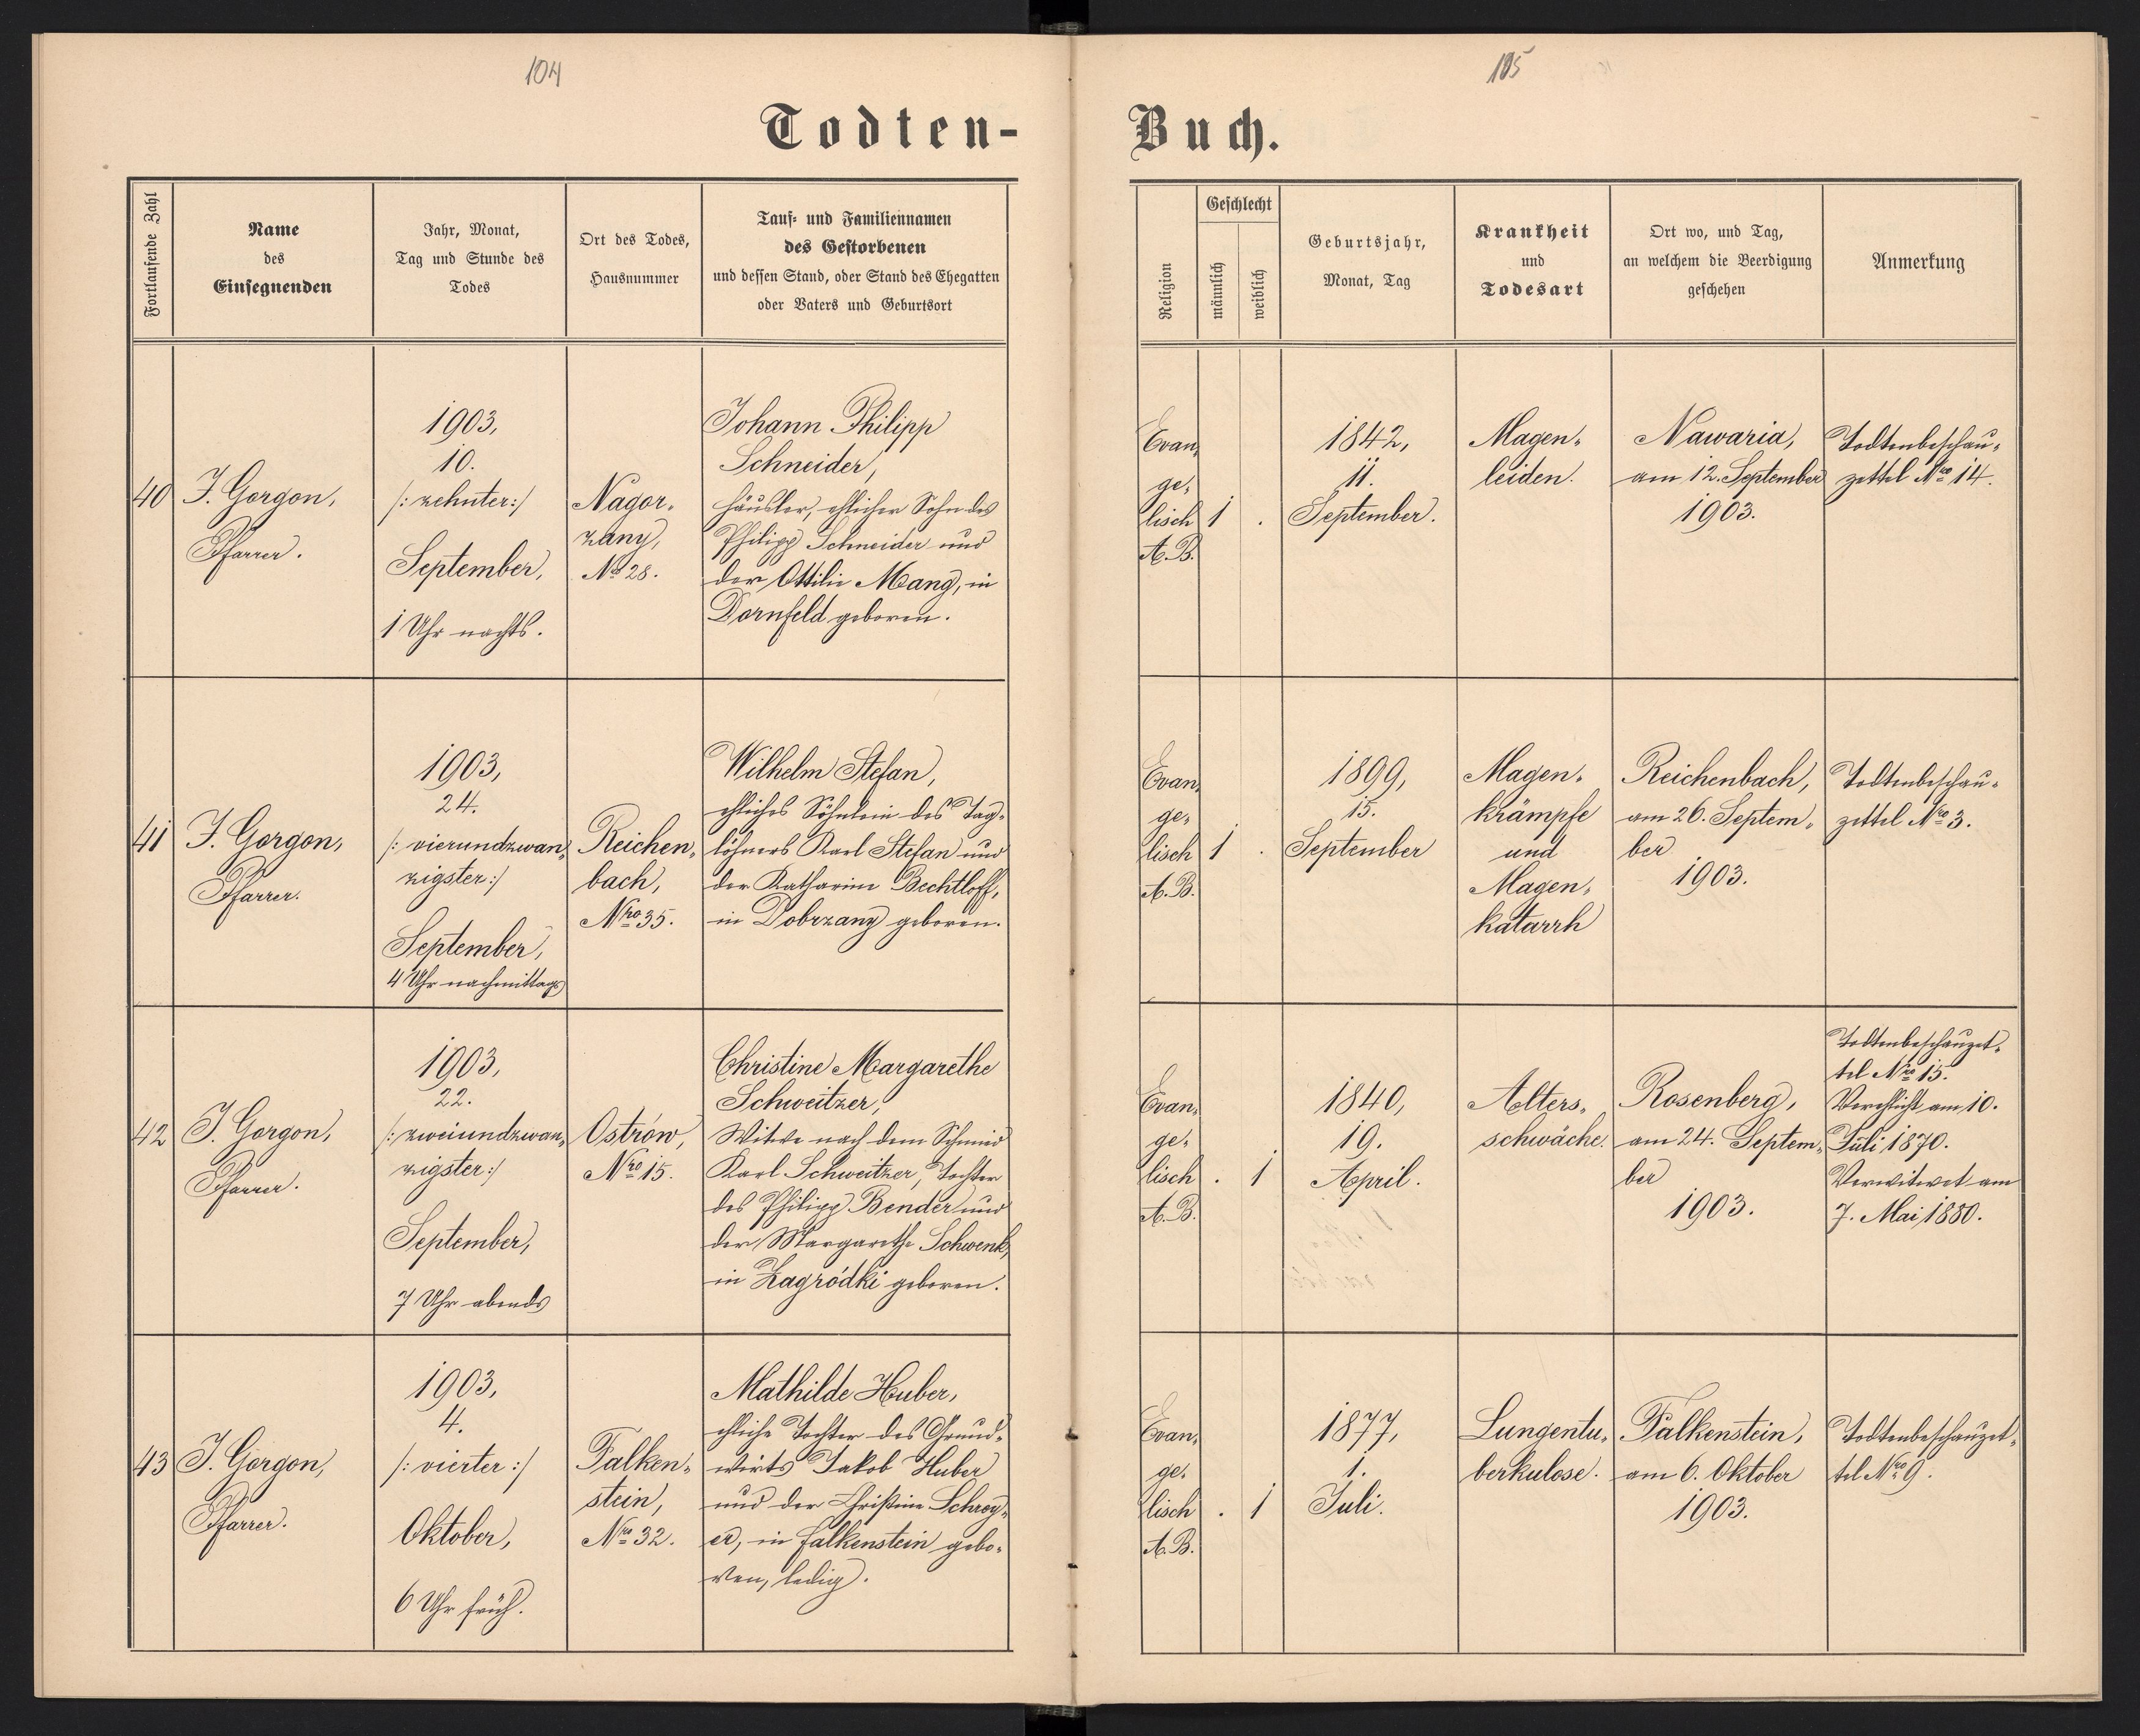 104
105
Todten-
Buch.
Fortlaufende Zahl
Name
des
Einsegnenden
Jahr, Monat,
Tag und Stunde des
Todes
Ort des Todes,
Hausnummer
Tauf- und Familiennamen
des Gestorbenen
und dessen Stand, oder Stand des Ehegatten
oder Vaters und Geburtsort
Religion
Geschlecht
männlich
weiblich
Geburtsjahr,
Monat, Tag
Krankheit
und
Todesart
Ort wo, und Tag,
an welchem die Beerdigung
geschehen
Anmerkung
40
J. Gorgon,
Pfarrer.
1903,
10.
/: zehnter :/
September,
1 Uhr nachts.
Nagor-
zany,
No 28.
Johann Philipp
Schneider,
Häusler, ehlicher Sohn des
Philipp Schneider und
der Ottilie Mang, in
Dornfeld geboren.
Evan-
ge-
lisch
A. B.
1 .
1842,
11.
September.
Magen-
leiden.
Nawaria,
am 12. September
1903.
Todtenbeschau-
zettel Nro 14.
41
J. Gorgon,
Pfarrer.
1903,
24.
/: vierundzwan-
zigster :/
September,
4 Uhr nachmittags
Reichen-
bach,
Nro 35.
Wilhelm Stefan,
ehliches Söhnlein des Tag-
löhners Karl Stefan und
der Katharine Bechtloff,
in Dobrzany geboren.
Evan-
ge-
lisch
A. B.
1 .
1899,
15.
September
Magen-
krämpfe
und
Magen-
katarrh
Reichenbach,
am 26. Septem-
ber
1903.
Todtenbeschau-
zettel Nro 3.
42
J. Gorgon,
Pfarrer.
1903,
22.
/: zweiundzwan-
zigster :/
September,
7 Uhr abends
Ostrów,
Nro 15.
Christine Margarethe
Schweitzer,
Witwe nach dem Schmied
Karl Schweitzer, Tochter
des Philipp Bender und
der Margarethe Schwenk,
in Zagródki geboren.
Evan-
ge-
lisch
A. B.
. 1
1840,
19.
April.
Alters-
schwäche.
Rosenberg,
am 24. Septem-
ber
1903.
Todtenbeschauzet-
tel Nro 15.
Verehlicht am 10.
Juli 1870.
Verwitwet am
7. Mai 1880.
43
J. Gorgon,
Pfarrer.
1903,
4.
/: vierter :/
Oktober,
6 Uhr früh.
Falken-
stein,
Nro 32.
Mathilde Huber,
ehliche Tochter des Grund-
wirts Jakob Huber
und der Christine Schrey-
er, in Falkenstein gebo-
ren, ledig.
Evan-
ge-
lisch
A. B.
. 1
1877,
1.
Juli.
Lungentu-
berkulose.
Falkenstein,
am 6. Oktober
1903.
Todtenbeschauzet-
tel Nro 9.